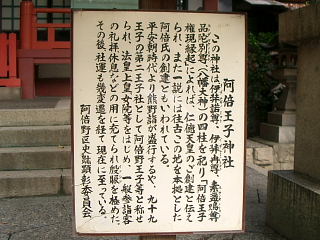 阿倍王子神社
この神社は伊弉諾尊、伊弉冉尊、素盞嗚尊
品陀別尊(八幡大神)の四柱を祀り「阿倍王子
権現縁起」によれば、仁徳天皇のご創建と伝え
られ、また一説には往古この地を本拠とした
阿倍氏の創建ともいわれている。
平安朝時代より熊野詣が盛行するや、九十九
王子の第二王子社として阿倍野王子等と称せ
られ、法皇上皇女院等をはじめ、一般参詣客
の礼拝休息などの用に充てられ殷賑を極めた。
その後、社運も幾変遷を経て現在に至っている。
阿倍野区史跡顕彰委員会